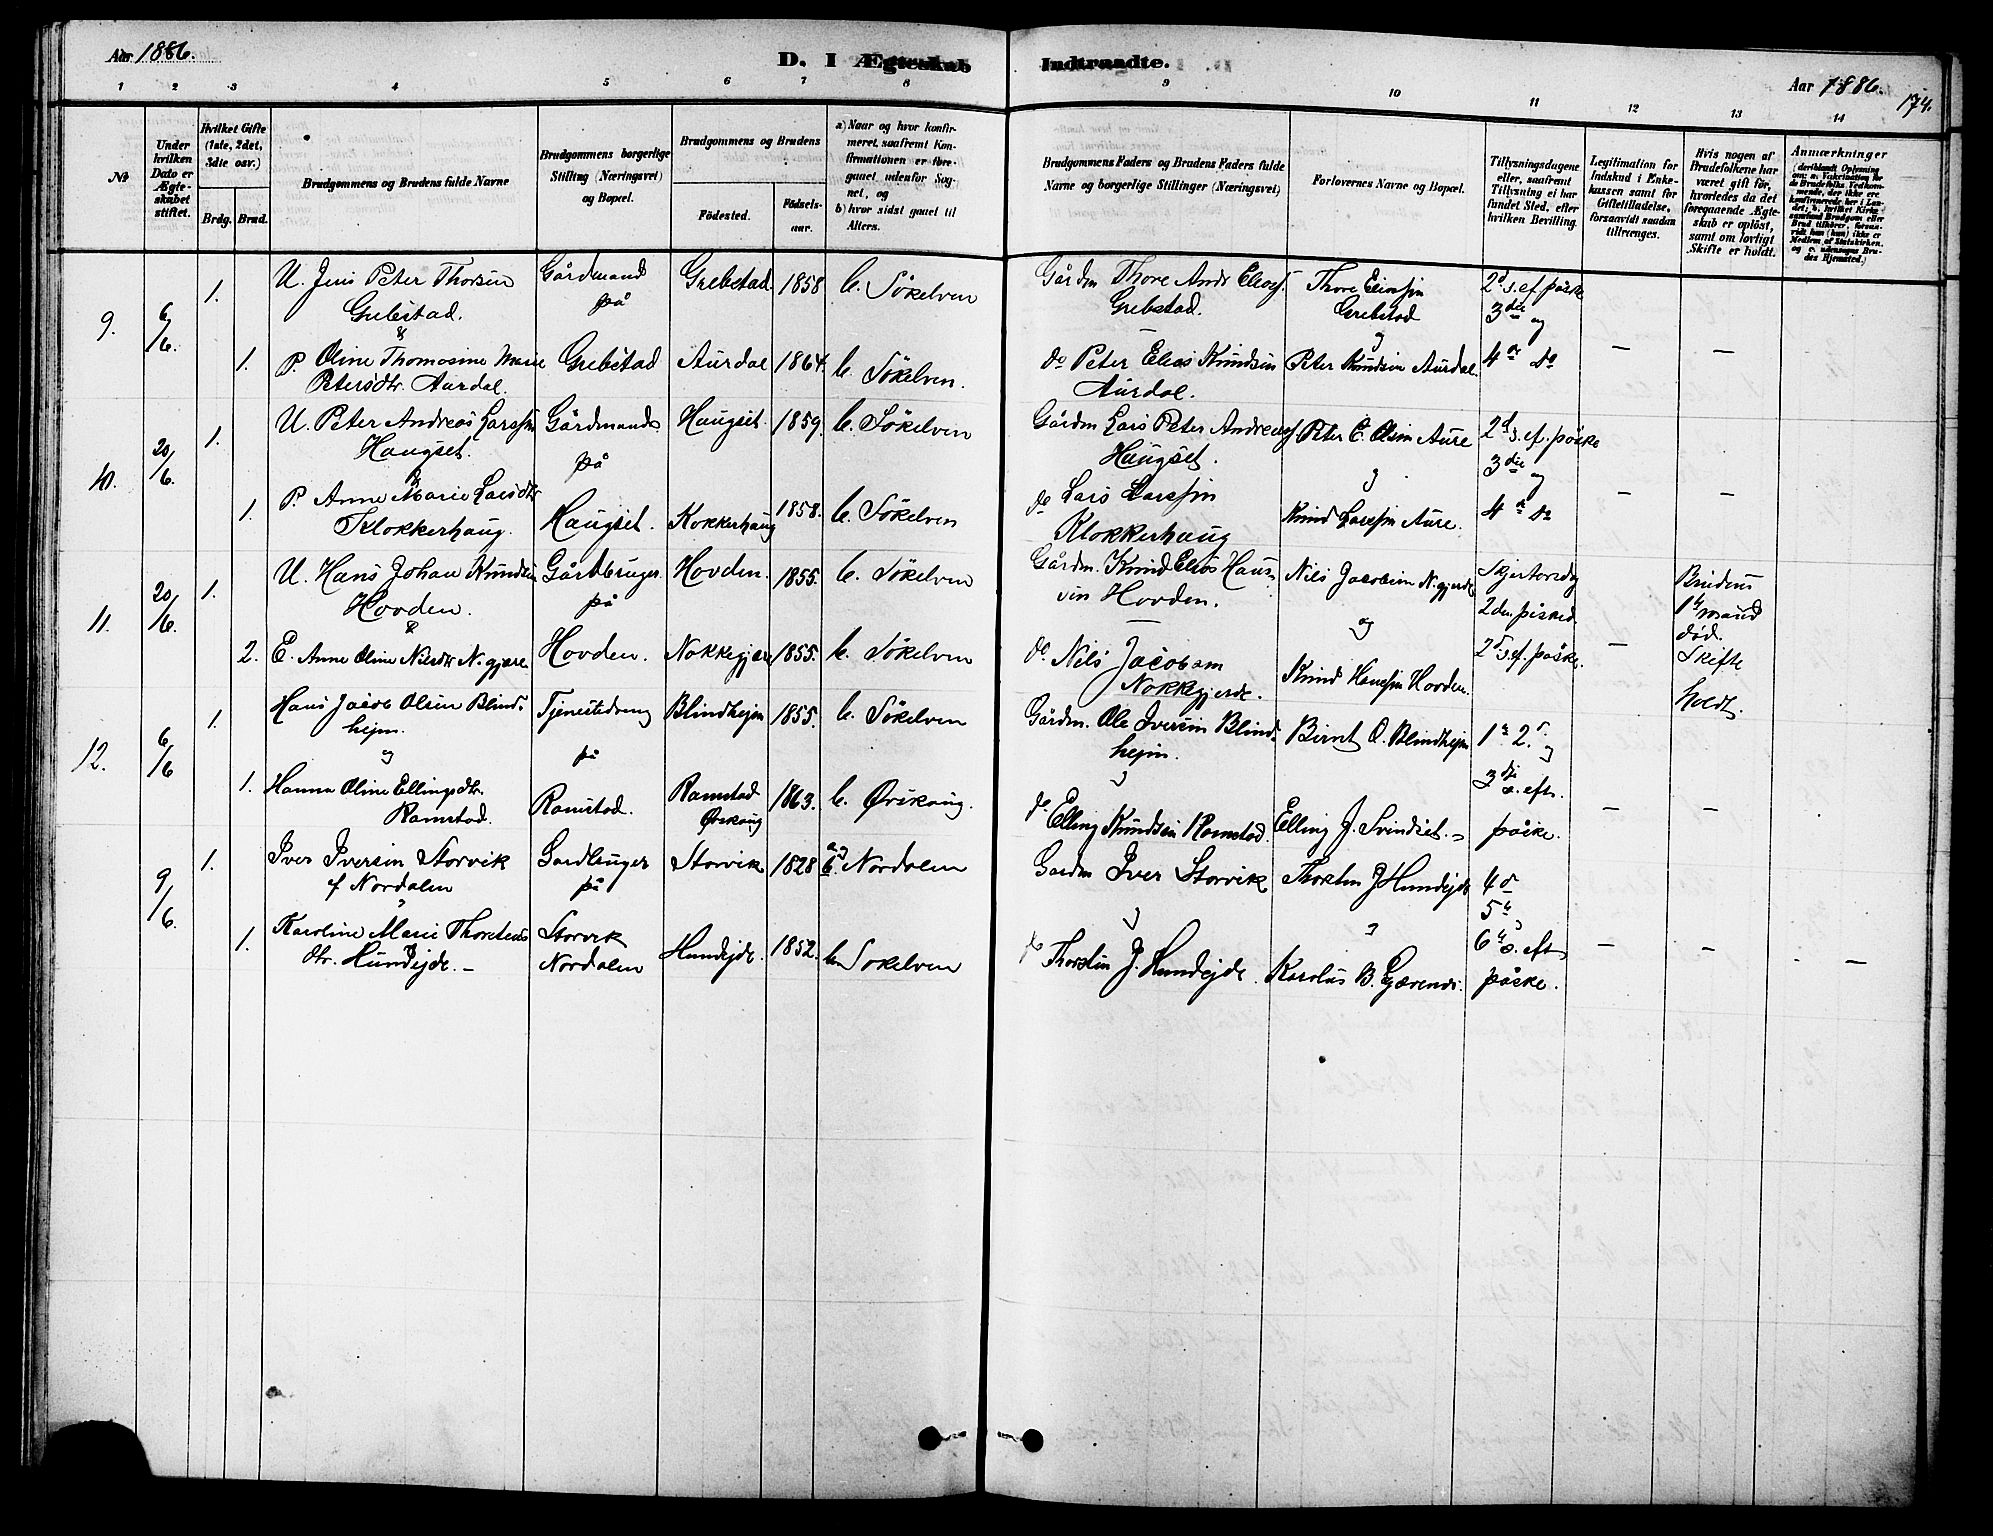 Aar 1886.
D. I Ægteskab Indtraadte.
Aar 1886.
174.
1 2 3 4 5 6 7 8 9 10 11 12 13 14
№
Under hvilken Dato er Ægteskabet stiftet.
Hvilket Gifte (1ste, 2det, 3die osv.)
Brdg. Brud.
Brudgommens og Brudens fulde Navne
Brudgommens borgerlige Stilling (Næringsvei) og Bopæl.
Brudgommens og Brudens
Fødested.
Fødselsaar.
a) Naar og hvor konfirmeret, saafremt Konfirmationen er foregaaet udenfor Sognet, og
b) hvor sidst gaaet til Alters.
Brudgommens Faders og Brudens Faders fulde Navne og borgerlige Stillinger (Næringsvei)
Forlovernes Navne og Bopæl.
Tillysningsdagene eller, saafremt Tillysning ei har fundet Sted, efter hvilken Bevilling.
Legitimation for Indskud i Enkekassen samt for Giftetilladelse, forsaavidt saadan tiltrænges.
Hvis nogen af Brudefolkene har været gift før, hvorledes da det foregaaende Ægteskab er opløst, samt om lovligt Skifte er holdt.
Anmærkninger
9. 6/6. 1. U. Jens Peter Thorsen Gårdmand Grebstad 1858 b. Sökelven Gårdm Thore Andr Elias. Thore Eliassen 2d s. ef. påske
Grebstad. på Grebstad. Grebstad 3die og
&
1. P. Oline Thomasine Marie Grebstad Aurdal 1864. b. Sökelven. do Peter Elias Knudsen Peter Knudsen Aurdal. 4de do — —
Petersdtr. Aurdal. Aurdal.
10. 20/6. 1. U. Peter Andreas Larssen Gårdmands Haugset. 1859. b. Sökelven Gårdm Lars Peter Andreas. Peter E. Olsen Aure 2d s. ef. påske
Haugset. på Haugset. og 3die og
&
1. P. Anne Marie Larsdtr Haugset. Kokkerhaug 1858. b. Sökelven do Lars Larssen Knud Larssen Aure. 4de do — —
Klokkerhaug. Klokkerhaug
11. 20/6. 1. U. Hans Johan Knudsen Gårdbruger. Hovden. 1855. b. Sökelven Gårdm. Knud Elias Hans- Nils Jacobsen N.gjerde Skjertorsdg Brudens
Hovden. på sen Hovden. og 2den påsked. 1ste mand
& død.
2. E. Anne Oline Nilsdtr N.gjære Hovden. Nokkegjære 1855. b. Sökelven do Nils Jacobsen Knud Hanssen Hovden. 2d s. ef. påske. — Skifte
Nokkegjerde. holdt.
12. 6/6 1. Hans Jacob Olsen Blind- Tjenestedreng Blindhejm 1855. b. Sökelven Gårdm. Ole Iversen Blind- Bernt O. Blindhejm 1ste 2. og
hejm. på hejm.
og
1. Hanna Oline Ellingsdtr. Ramstad. Ramstad 1863. b. Ørskoug. do Elling Knudsen Ramstad. Elling J. Svindset. 3die s. eft. — —
Ramstad. Ørskoug påske.
9/6. 1. Iver Iversen Storvik Gardbruger Storvik 1828 a og b. Nordalen Gardm Iver Storvik Thorsten J Hundejde 4de
f Nordalen på 5te
1. Karoline Marie Thorstens Storvik Hundejde. 1852. b. Sökelven do Thorsten J. Hundejde. Karolus B. 6te s. eft — — —
dtr. Hundejde. — Nordalen påske.